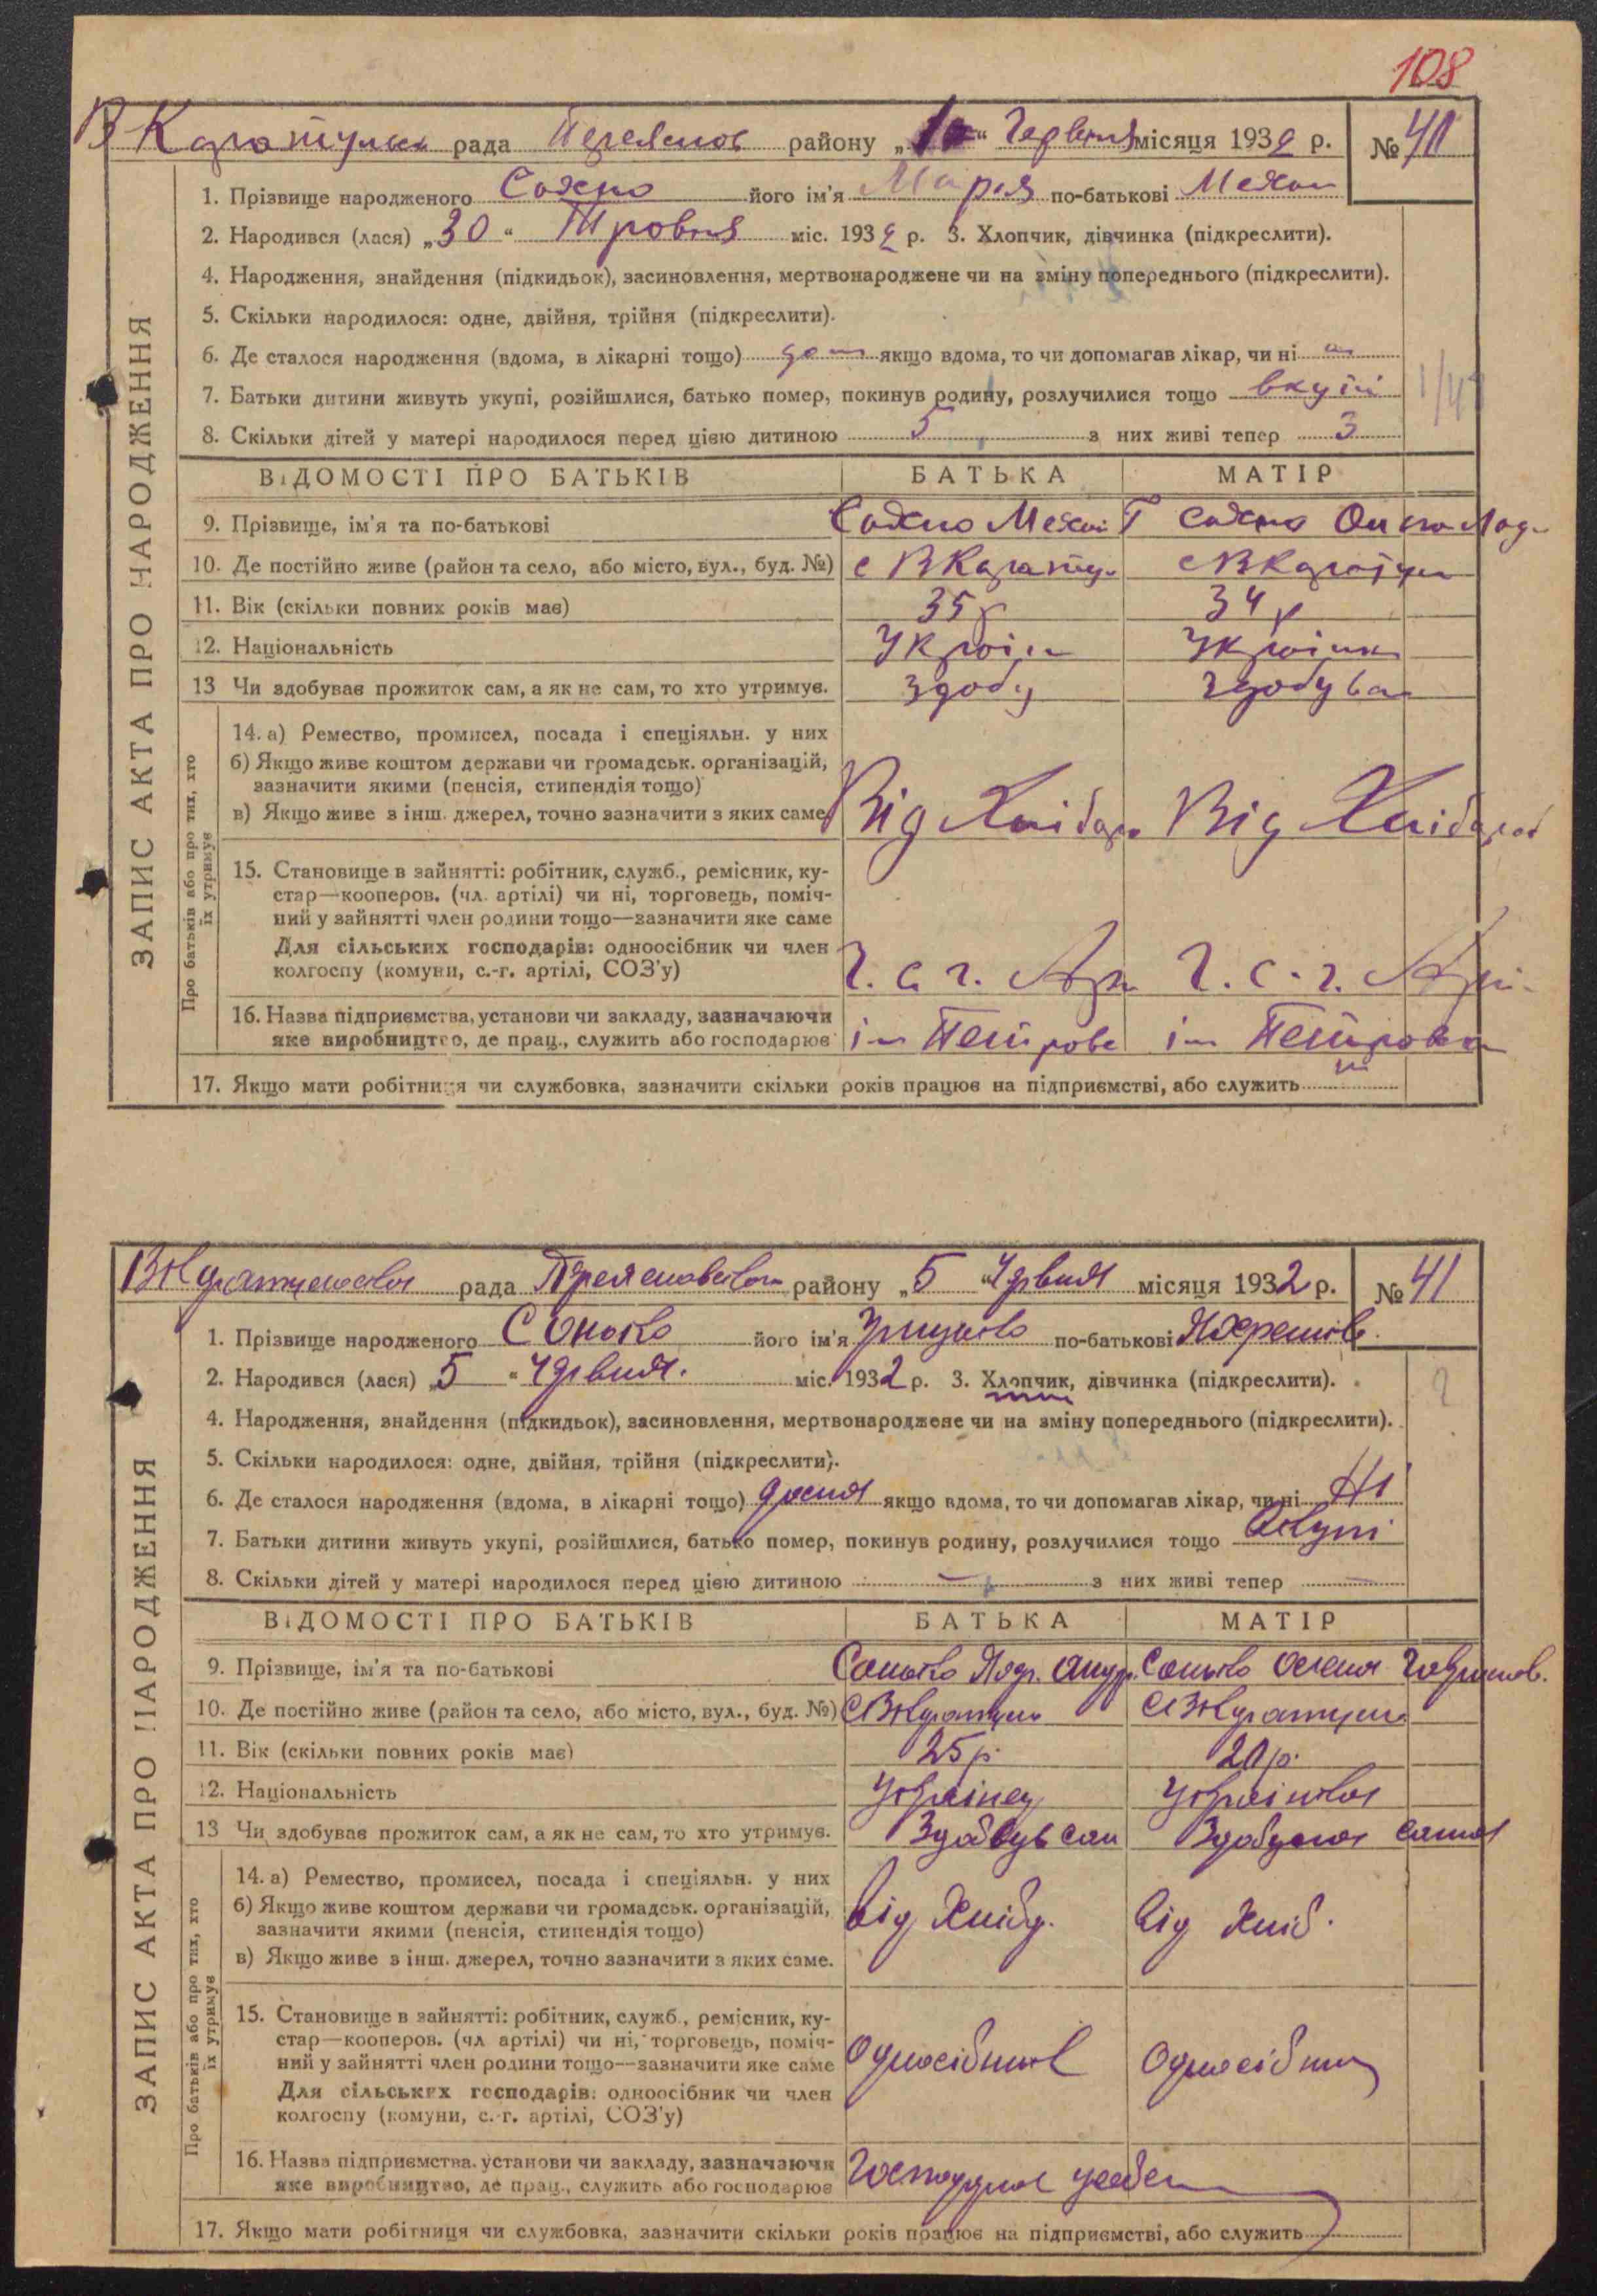 108
В Каратульск рада Переяслов району „1“ Червня місяця 1932 р. № 40
ЗАПИС АКТА ПРО НАРОДЖЕННЯ
1. Прізвище народженого Сахно його ім'я Марія по-батькові Михай
2. Народився (лася) „30“ Травня міс. 1932 р. 3. Хлопчик, дівчинка (підкреслити).
4. Народження, знайдення (підкидьок), засиновлення, мертвонароджене чи на зміну попереднього (підкреслити).
5. Скільки народилося: одне, двійня, трійня (підкреслити).
6. Де сталося народження (вдома, в лікарні тощо) дом якщо вдома, то чи допомагав лікар, чи ні
7. Батьки дитини живуть укупі, розійшлися, батько помер, покинув родину, розлучилися тощо вкупі
8. Скільки дітей у матері народилося перед цією дитиною 5 з них живі тепер 3
ВІДОМОСТІ ПРО БАТЬКІВ БАТЬКА МАТІР
9. Прізвище, ім'я та по-батькові Сахно Михай Г Сахно
10. Де постійно живе (район та село, або місто, вул., буд. №) с В Карату с В Каратул
11. Вік (скільки повних років має) 35 р 34 р
12. Національність Україн Українк
13 Чи здобував прожиток сам, а як не сам, то хто утримує. здобу здобува
Про батьків або про тих, хто їх утримує
14. а) Ремество, промисел, посада і спеціяльн. у них
б) Якщо живе коштом держави чи громадськ. організацій,
зазначити якими (пенсія, стипендія тощо)
в) Якщо живе з інш. джерел, точно зазначити з яких саме. Від Хлібор Від Хлібороб
15. Становище в зайнятті: робітник, служб., ремісник, ку-
стар—кооперов. (чл. артілі) чи ні, торговець, поміч-
ний у зайнятті член родини тощо—зазначити яке саме
Для сільських господарів: одноосібник чи член
колгоспу (комуни, с.-г. артілі, СОЗ'у) Ч. с. г. Арт Ч. с.-г. Арт
16. Назва підприємства, установи чи закладу, зазначаючи
яке виробництво, де прац., служить або господарює ім Петрова ім Петрова
17. Якщо мати робітниця чи службовка, зазначити скільки років працює на підприємстві, або служить
рада району „5“ Червня місяця 1932 р. № 41
ЗАПИС АКТА ПРО НАРОДЖЕННЯ
1. Прізвище народженого його ім'я по-батькові
2. Народився (лася) „5“ Червня. міс. 1932 р. 3. Хлопчик, дівчинка (підкреслити).
4. Народження, знайдення (підкидьок), засиновлення, мертвонароджене чи на зміну попереднього (підкреслити).
5. Скільки народилося: одне, двійня, трійня (підкреслити).
6. Де сталося народження (вдома, в лікарні тощо) дома якщо вдома, то чи допомагав лікар, чи ні Ні
7. Батьки дитини живуть укупі, розійшлися, батько помер, покинув родину, розлучилися тощо вкупі
8. Скільки дітей у матері народилося перед цією дитиною — з них живі тепер —
ВІДОМОСТІ ПРО БАТЬКІВ БАТЬКА МАТІР
9. Прізвище, ім'я та по-батькові
10. Де постійно живе (район та село, або місто, вул., буд. №) с В Каратули с В Каратули
11. Вік (скільки повних років має) 25 р. 20 р.
12. Національність Українец Українка
13 Чи здобував прожиток сам, а як не сам, то хто утримує. Здобував сам Здобувала сама
Про батьків або про тих, хто їх утримує
14. а) Ремество, промисел, посада і спеціяльн. у них
б) Якщо живе коштом держави чи громадськ. організацій,
зазначити якими (пенсія, стипендія тощо)
в) Якщо живе з інш. джерел, точно зазначити з яких саме. від Хліб. від Хліб.
15. Становище в зайнятті: робітник, служб., ремісник, ку-
стар—кооперов. (чл артілі) чи ні, торговець, поміч-
ний у зайнятті член родини тощо—зазначити яке саме
Для сільських господарів: одноосібник чи член
колгоспу (комуни, с.-г. артілі, СОЗ'у) Одноосібник Одноосібниц
16. Назва підприємства, установи чи закладу, зазначаючи
яке виробництво, де прац., служить або господарює
17. Якщо мати робітниця чи службовка, зазначити скільки років працює на підприємстві, або служить